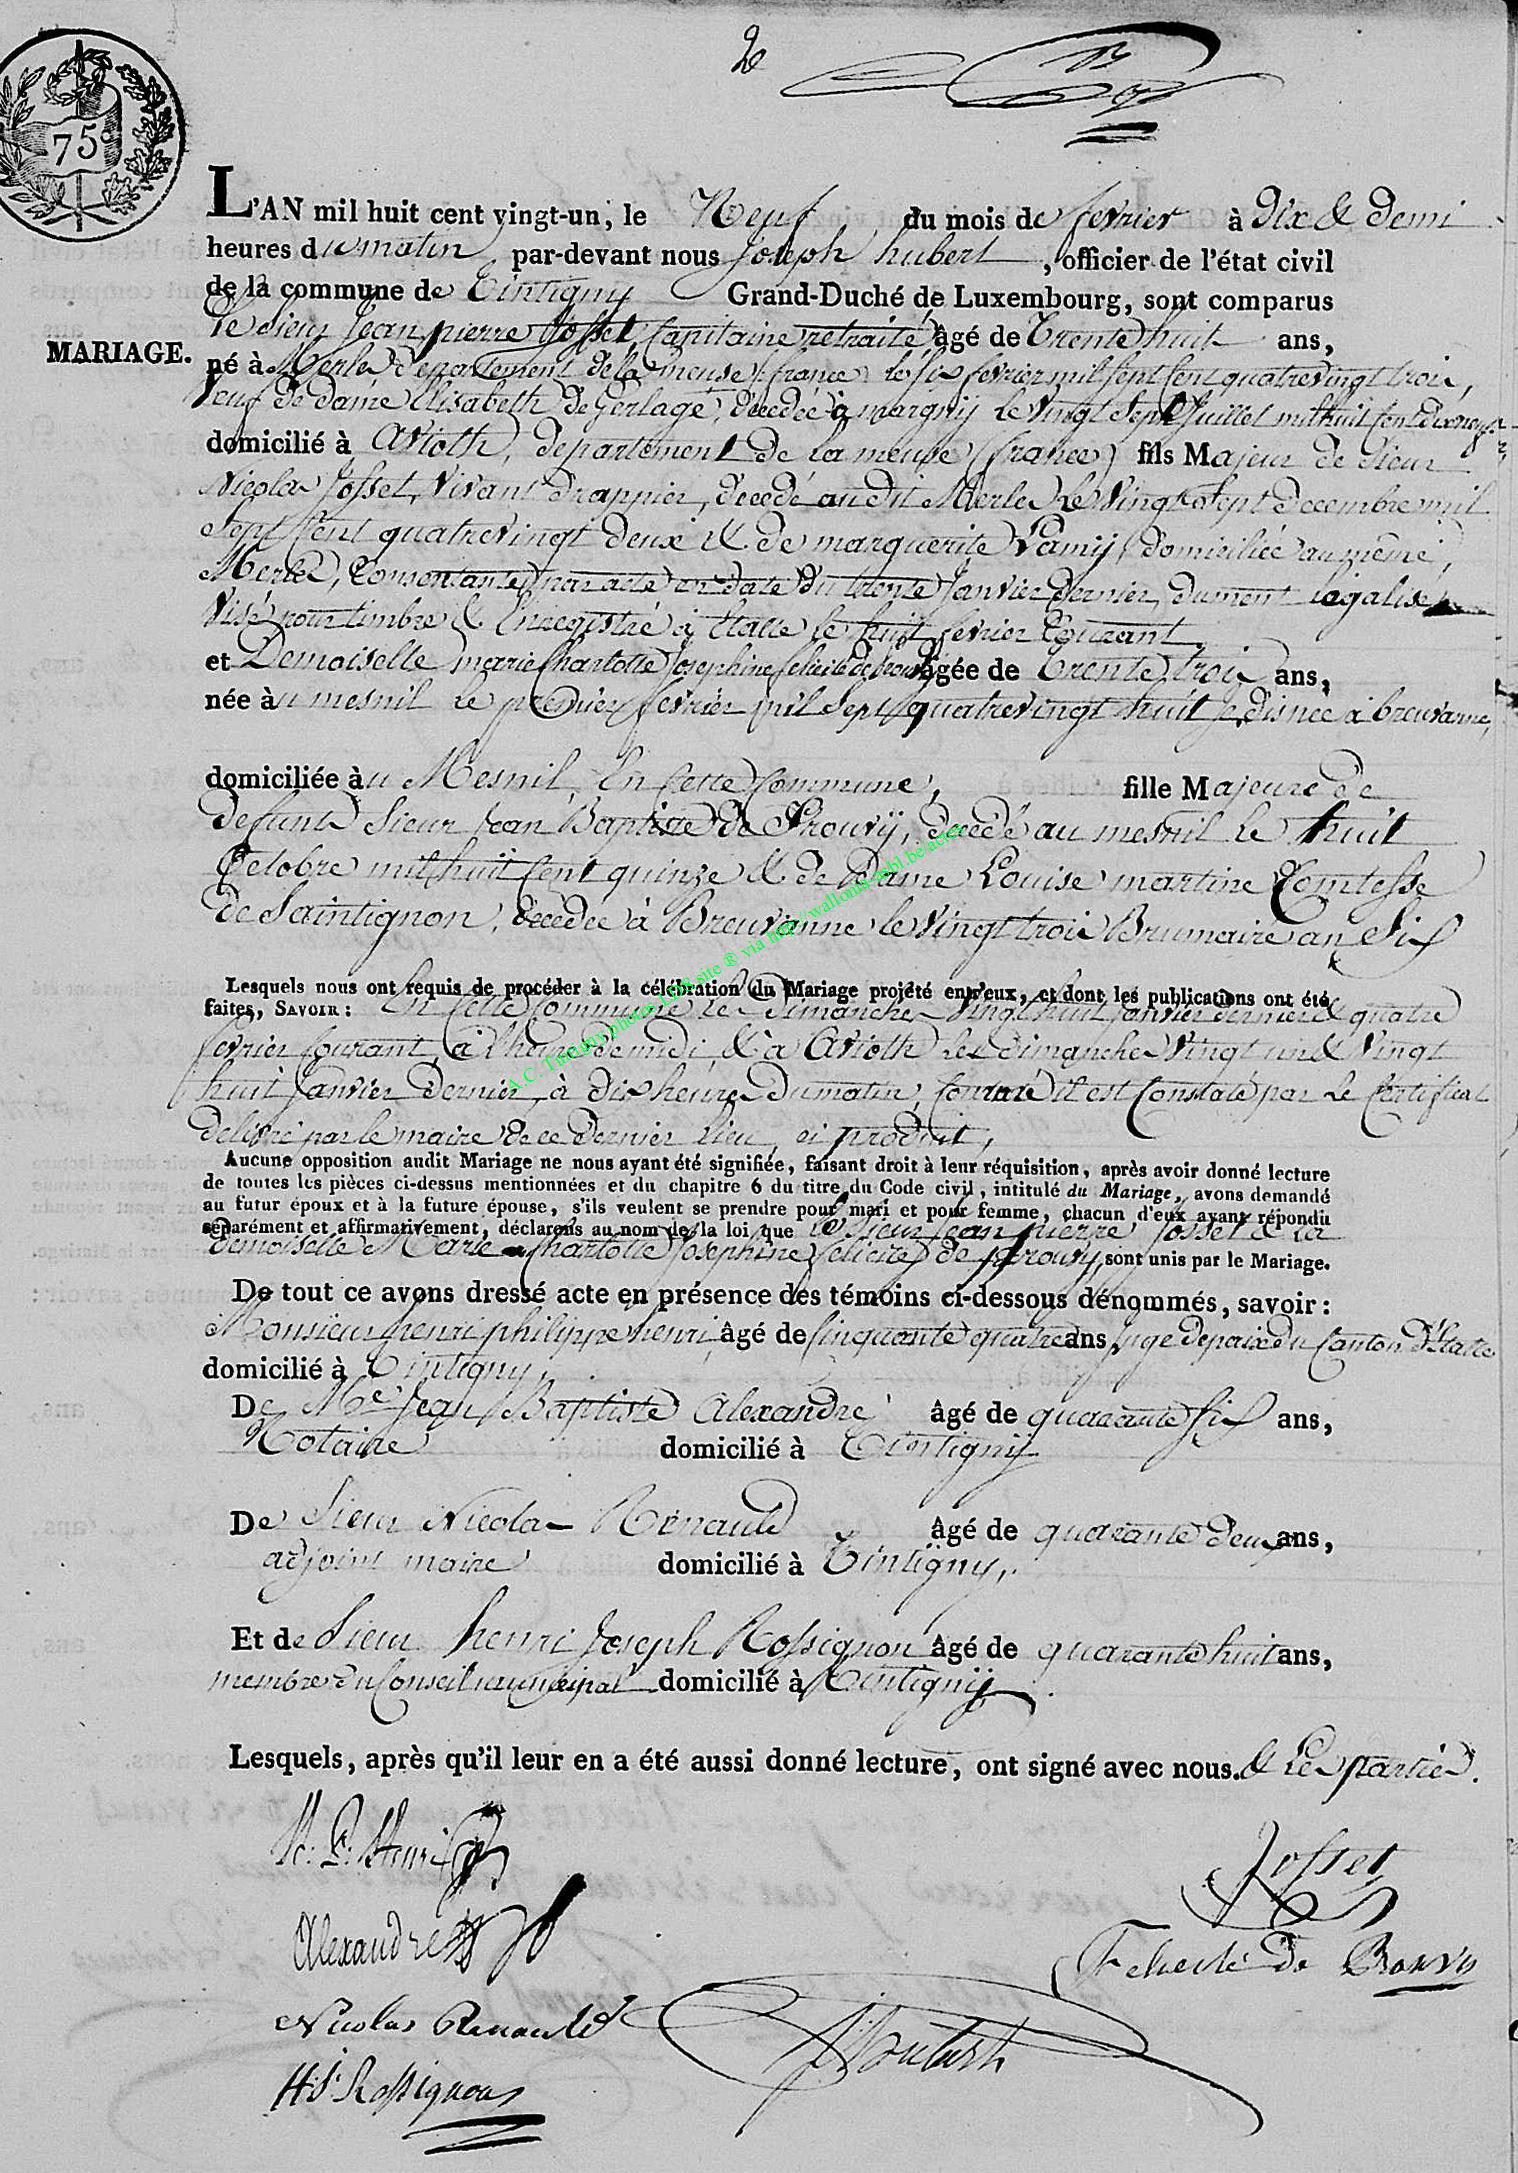 2e
75c
L'AN mil huit cent vingt-un, le Neuf du mois de fevrier à Dix & demi
heures du matin par-devant nous Joseph hubert, officier de l'état civil
de la commune de Tintigny Grand-Duché de Luxembourg, sont comparus
MARIAGE.
le Sieur Jean pierre Josset, Capitaine retraité âgé de Trente huit ans,
né à Merles département de la meuse (france) le six fevrier mil sept Cent quatre vingt trois,
veuf de dame Elisabeth De Gerlage, décedée à margny le vingt Sept Juillet mil huit Cent dix neuf
domicilié à Avioth, departement de la meuse (france) fils Majeur de Sieur
Nicolas Josset, vivant Drappier, décedé au dit Merles le vingt Sept decembre mil
Sept Cent quatre vingt deux & de marguerite Lamy, domiciliée au même
Merles, Consentante par acte en date du trente Janvier dernier, dument légalisé,
visé pour timbre & Enregistré à Etalle le huit fevrier Courant
et Demoiselle marie Charlotte Josephine félicité de prouvy âgée de Trente trois ans,
née au mesnil le premier fevrier mil Sept quatre vingt huit je dis née à breuvanne,
domiciliée au Mesnil, En Cette Commune, fille Majeure de
défunts Sieur Jean Baptiste de Prouvy, décedé au mesnil le huit
Octobre mil huit Cent quinze & de Dame Louise martine Comtesse
de Saintignon, décedée à Breuvanne le vingt trois Brumaire an Six
Lesquels nous ont requis de procéder à la célébration du Mariage projeté entr'eux, et dont les publications ont été
faites, SAVOIR: En Cette Commune les Dimanches vingt huit Janvier dernier & quatre
fevrier Courant, à l'heure de midi & à Avioth les dimanches vingt un & vingt
huit Janvier dernier, à dix heures du matin, Comme il est Constaté par le Certificat
délivré par le maire de ce dernier lieu, ci produit,
Aucune opposition audit Mariage ne nous ayant été signifiée, faisant droit à leur réquisition, après avoir donné lecture
de toutes les pièces ci-dessus mentionnées et du chapitre 6 du titre du Code civil, intitulé du Mariage, avons demandé
au futur époux et à la future épouse, s'ils veulent se prendre pour mari et pour femme, chacun d'eux ayant répondu
séparément et affirmativement, déclarons au nom de la loi que le Sieur Jean pierre Josset & la
demoiselle Marie Charlotte Josephine félicité de prouvy, sont unis par le Mariage.
De tout ce avons dressé acte en présence des témoins ci-dessous dénommés, savoir:
Monsieur henri philippe henri, âgé de Cinquante quatre ans, juge de paix du Canton d'Etalle
domicilié à Tintigny,
De Me Jean Baptiste Alexandre âgé de quarante six ans,
Notaire domicilié à Tintigny
De Sieur Nicolas Renauld âgé de quarante deux ans,
adjoint maire domicilié à Tintigny,
Et de Sieur henri Joseph Rossignon âgé de quarante huit ans,
membre du Conseil municipal domicilié à Tintigny
Lesquels, après qu'il leur en a été aussi donné lecture, ont signé avec nous. & Les parties.
H. P. Henri
Josset
Alexandre
Felicité De Prouvy
Nicolas Renauld
J Hubert
H. J. Rossignon
A.C. Tintigny photos LDS site ® via http://wallonia-asbl.be/actes